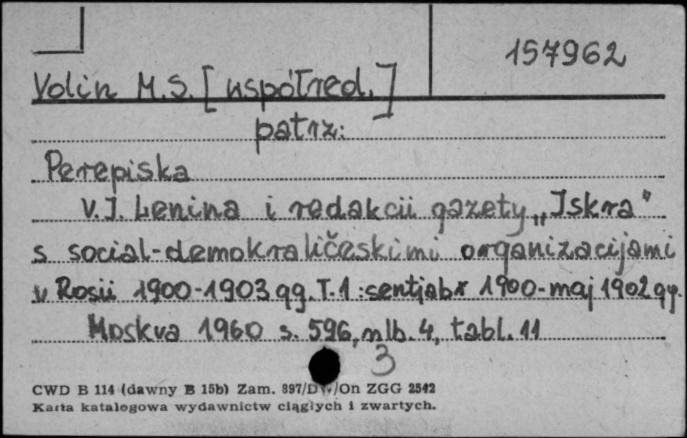 157962
Volin M.S. [współred.]
patrz:
Perepiska
V.I. Lenina i redakcii gazety „Iskra"
s social-demokratičeskimi organizacijami
v Rosii 1900-1903 gg. T.1: sentjabr 1900-maj 1902 gg.
Moskva 1960 s. 596, nlb. 4, tabl. 11
3
CWD B 114 (dawny B 15b) Zam. 897/D /On ZGG 2542
Karta katalogowa wydawnictw ciągłych i zwartych.